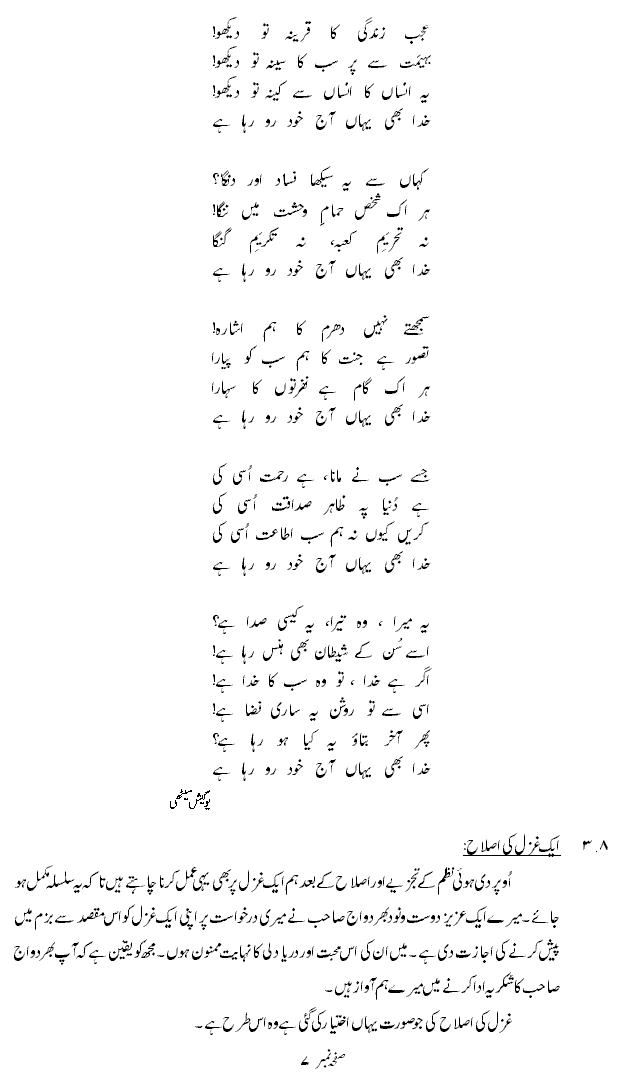 عجب زندگی کا قرینہ تو دیکھو!
بہیمت سے پر سب کا سینہ تو دیکھو!
یہ انساں کا انساں سے کینہ تو دیکھو!
خدا بھی یہاں آج خود رو رہا ہے
کہاں سے یہ سیکھا فساد اور دنگا؟
ہر اک شخص حمامِ وحشت میں ننگا!
نہ تحریَمِ کعبہ، نہ تکریَمِ گنگا
خدا بھی یہاں آج خود رو رہا ہے
سمجھتے نہیں دھرم کا ہم اشارہ!
تصور ہے جنت کا ہم سب کو پیارا
ہر اک گام ہے نفرتوں کا سہارا
خدا بھی یہاں آج خود رو رہا ہے
جسے سب نے مانا، ہے رحمت اُسی کی
ہے دُنیا پہ ظاہر صداقت اُسی کی
کریں کیوں نہ ہم سب اطاعت اُسی کی
خدا بھی یہاں آج خود رو رہا ہے
یہ میرا ، وہ تیرا، یہ کیسی صدا ہے؟
اسے سُن کے شیطان بھی ہنس رہا ہے!
اگر ہے خدا ، تو وہ سب کا خدا ہے!
اسی سے تو روشن یہ ساری فضا ہے!
پھر آخر بتاؤ یہ کیا ہو رہا ہے؟
خدا بھی یہاں آج خود رو رہا ہے
یوگیش سیٹھی
۳.۸ ایک غزل کی اصلاح:
اُوپر دی ہوئی نظم کے تجزیے اور اصلاح کے بعد ہم ایک غزل پر بھی یہی عمل کرنا چاہتے ہیں تا کہ یہ سلسلہ مکمل ہو
جائے ۔ میرے ایک عزیز دوست ونود بھردواج صاحب نے میری درخواست پر اپنی ایک غزل کو اس مقصد سے بزم میں
پیش کرنے کی اجازت دی ہے ۔ میں ان کی اس محبت اور دریا دلی کا نہایت ممنون ہوں۔ مجھ کو یقین ہے کہ آپ بھردواج
صاحب کا شکریہ ادا کرنے میں میرے ہم آواز ہیں ۔
غزل کی اصلاح کی جو صورت یہاں اختیار کی گئی ہے وہ اس طرح ہے ۔
صفحہ نمبر ۷